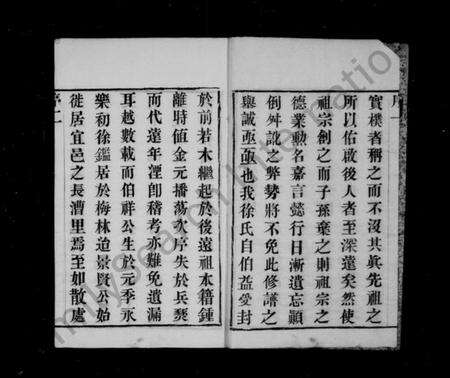 實樸者稱之而不沒其眞先祖之
所以佑啟後人者至深遠矣然使
祖宗創之而子孫棄之則祖宗之
德業勲名嘉言懿行日漸遺忘顚
倒舛訛之弊勢將不免此修譜之
舉誠亟亟也我徐氏自伯益受封
於前若木繼起於後遠祖本籍鍾
離時値金元播蕩亦序失於兵燹
而代遠年湮卽稽考亦難免遺漏
耳越數載而伯祥公生於元季永
樂初徐鑑居於梅林迨景賢公始
徙居宜邑之長漕里焉至如散處
序二